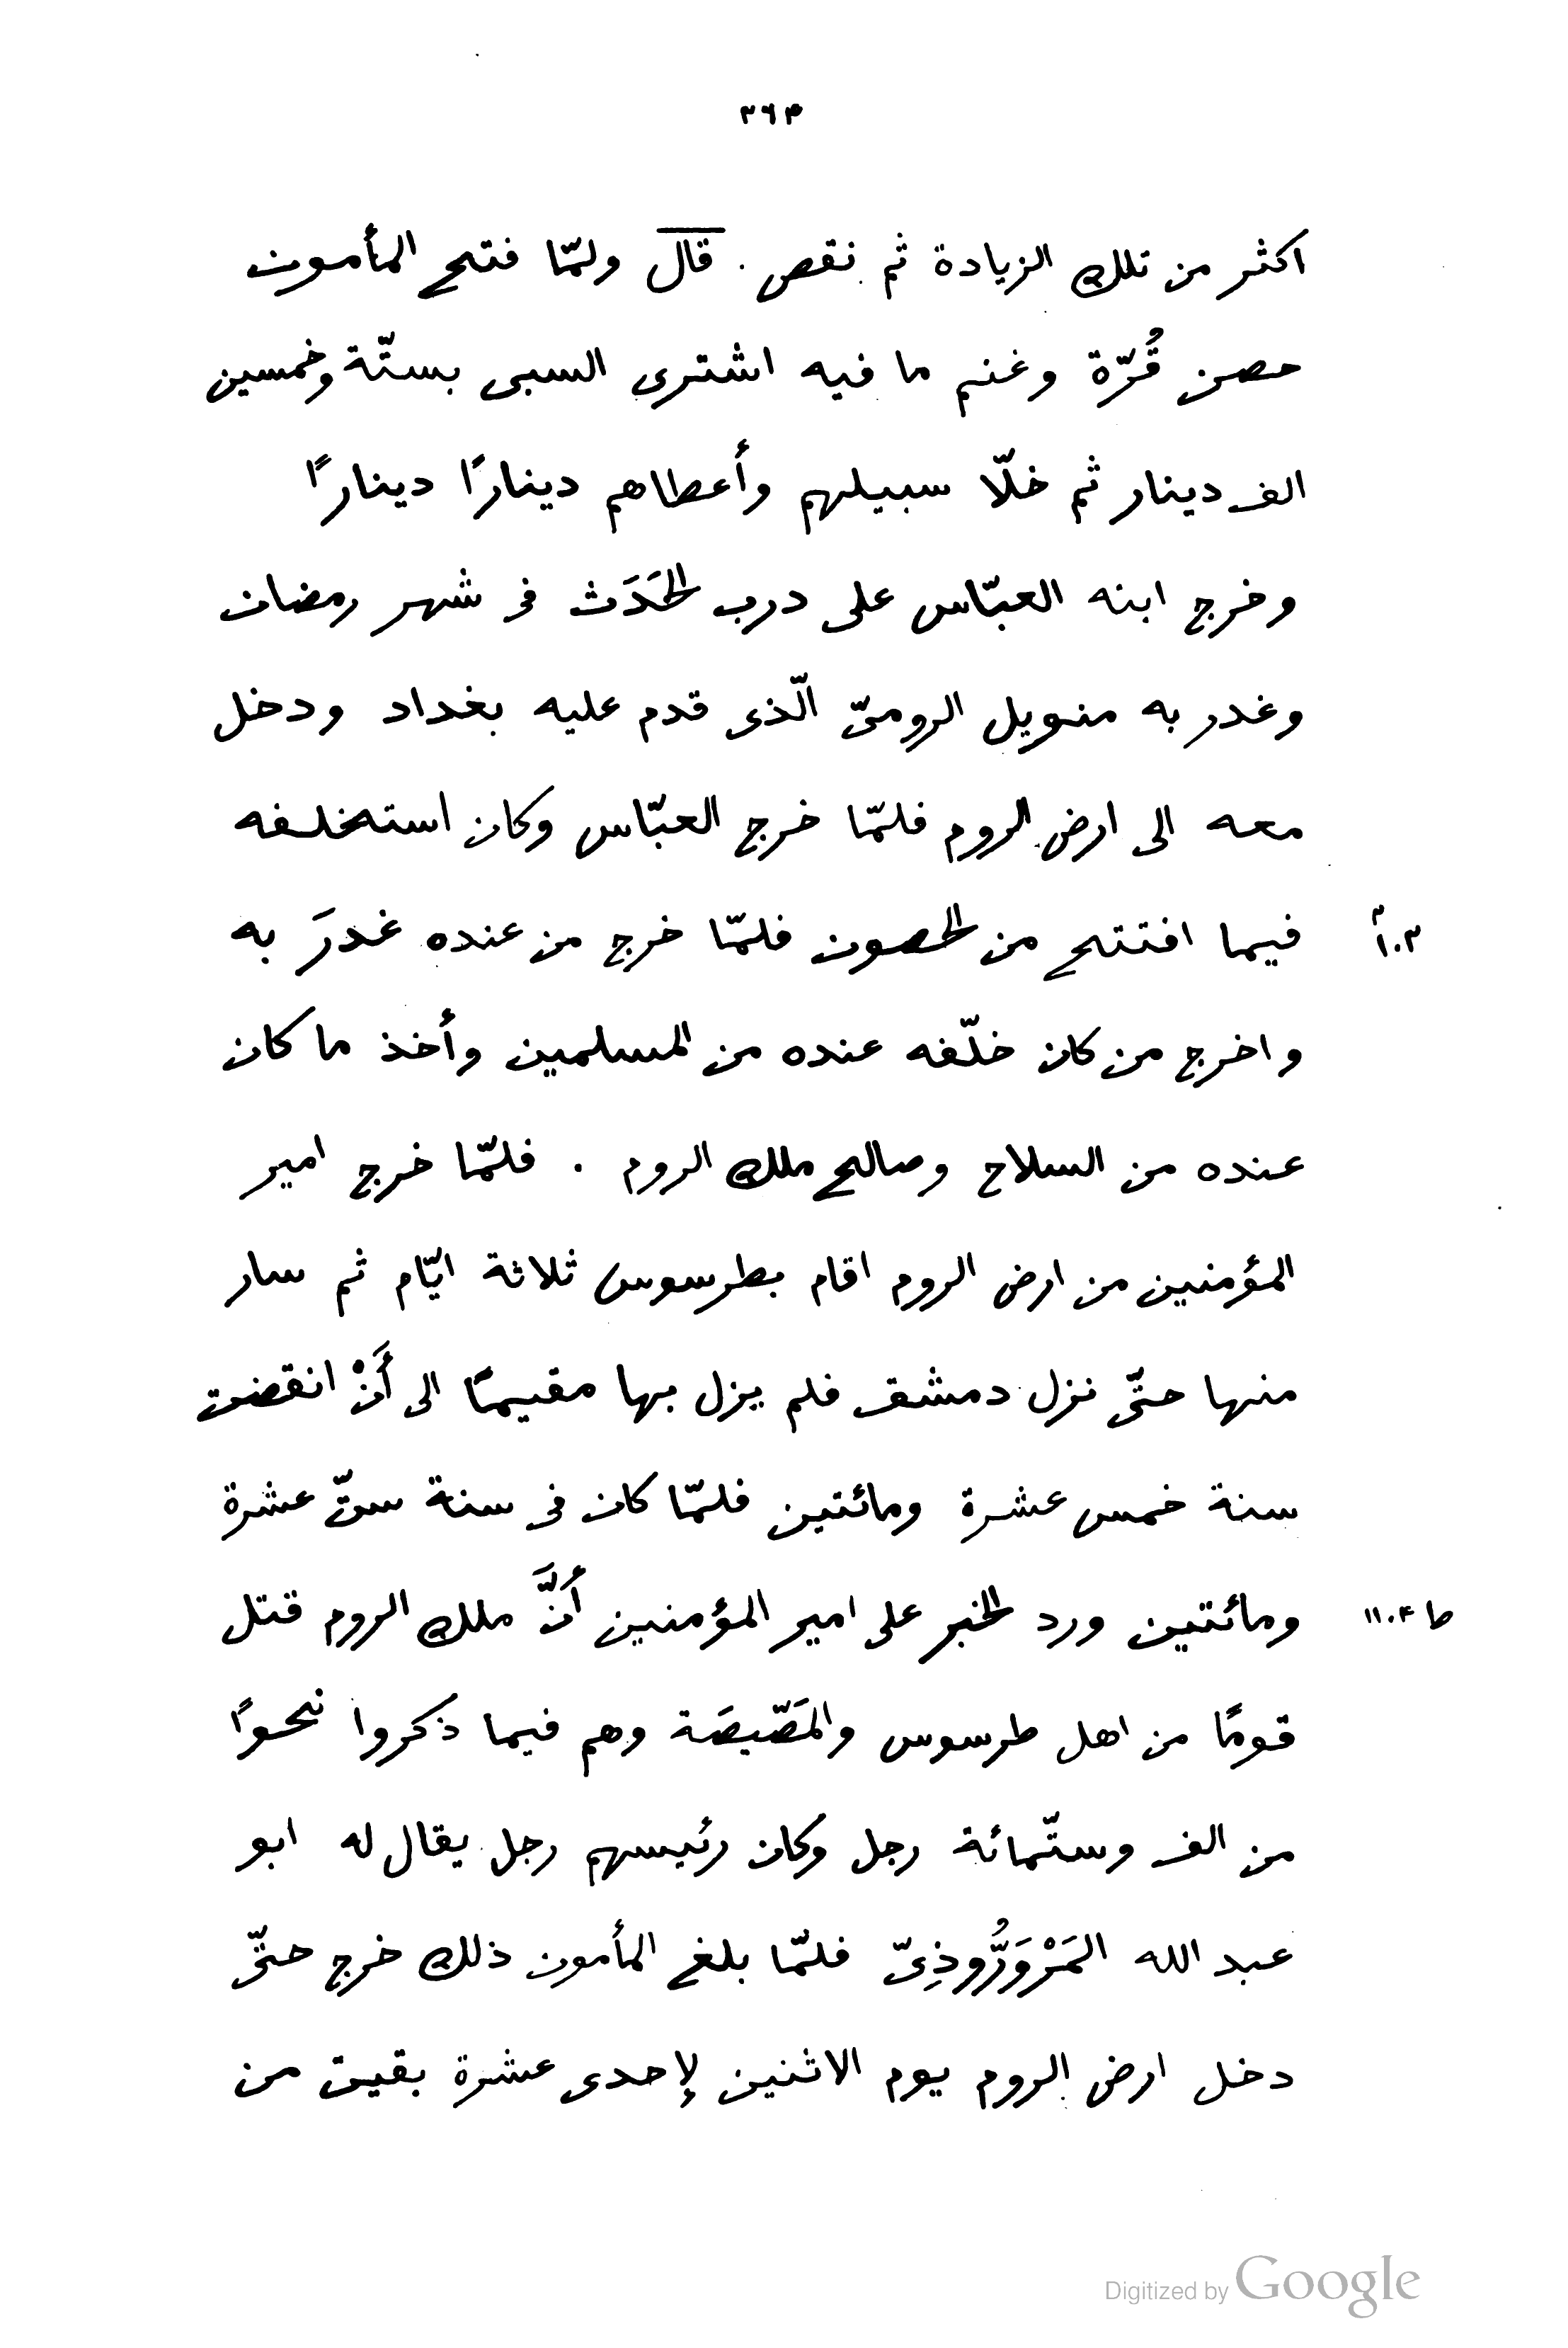 ٢٦٣
اكثر من تلك الزيادة ثم نقص . قال ولمّا فتح المأمون
حصن قُرّة وغنم ما فيه اشترى السبى بستّة وخمسين
الف دينار ثم خلّا سبيلهم وأعطاهم دينارًا دينارًا
وخرج ابنه العبّاس على درب الحَدَث فى شهر رمضان
وغدر به منويل الرومىّ الّذى قدم عليه بغداد ودخل
معه الى ارض الروم فلمّا خرج العبّاس وكان استخلفه
فيما افتتح من الحصون فلمّا خرج من عنده غدرَ به
واخرج من كان خلّفه عنده من المسلمين وأخذ ما كان
عنده من السلاح وصالح ملك الروم . فلمّا خرج امير
المؤمنين من ارض الروم اقام بطرسوس ثلاثة ايّام ثم سار
منها حتّى نزل دمشق فلم يزل بها مقيمًا الى أَنْ انقضت
سنة خمس عشرة ومائتين فلمّا كان فى سنة ستّ عشرة
ومائتين ورد الخبر على امير المؤمنين أَنَّ ملك الروم قتل
ط ١١٠٤
قومًا من اهل طرسوس والمَصّيصَة وهم فيما ذكروا نحوًا
من الف وستّمائة رجل وكان رئيسهم رجل يقال له ابو
عبد الله المَرْوَرُّوذِىّ فلمّا بلغ المأمون ذلك خرج حتّى
دخل ارض الروم يوم الاثنين لإحدى عشرة بقيت من
Digitized by Google